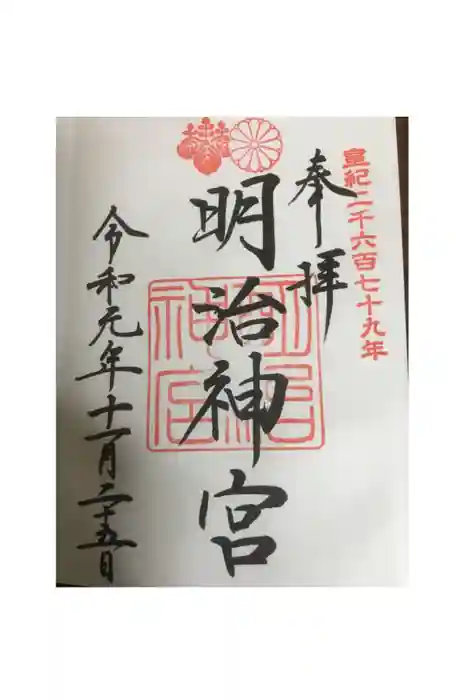 皇紀二千六百七十九年
奉拝
明治神宮
明治神宮
令和元年十一月二十五日